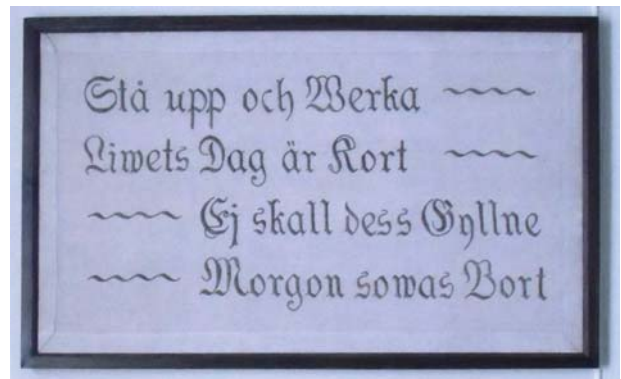 Stå upp och Werka ~~~~
Liwets Dag är Kort ~~~~
~~~~ Ej skall dess Gyllne
~~~~ Morgon sowas Bort